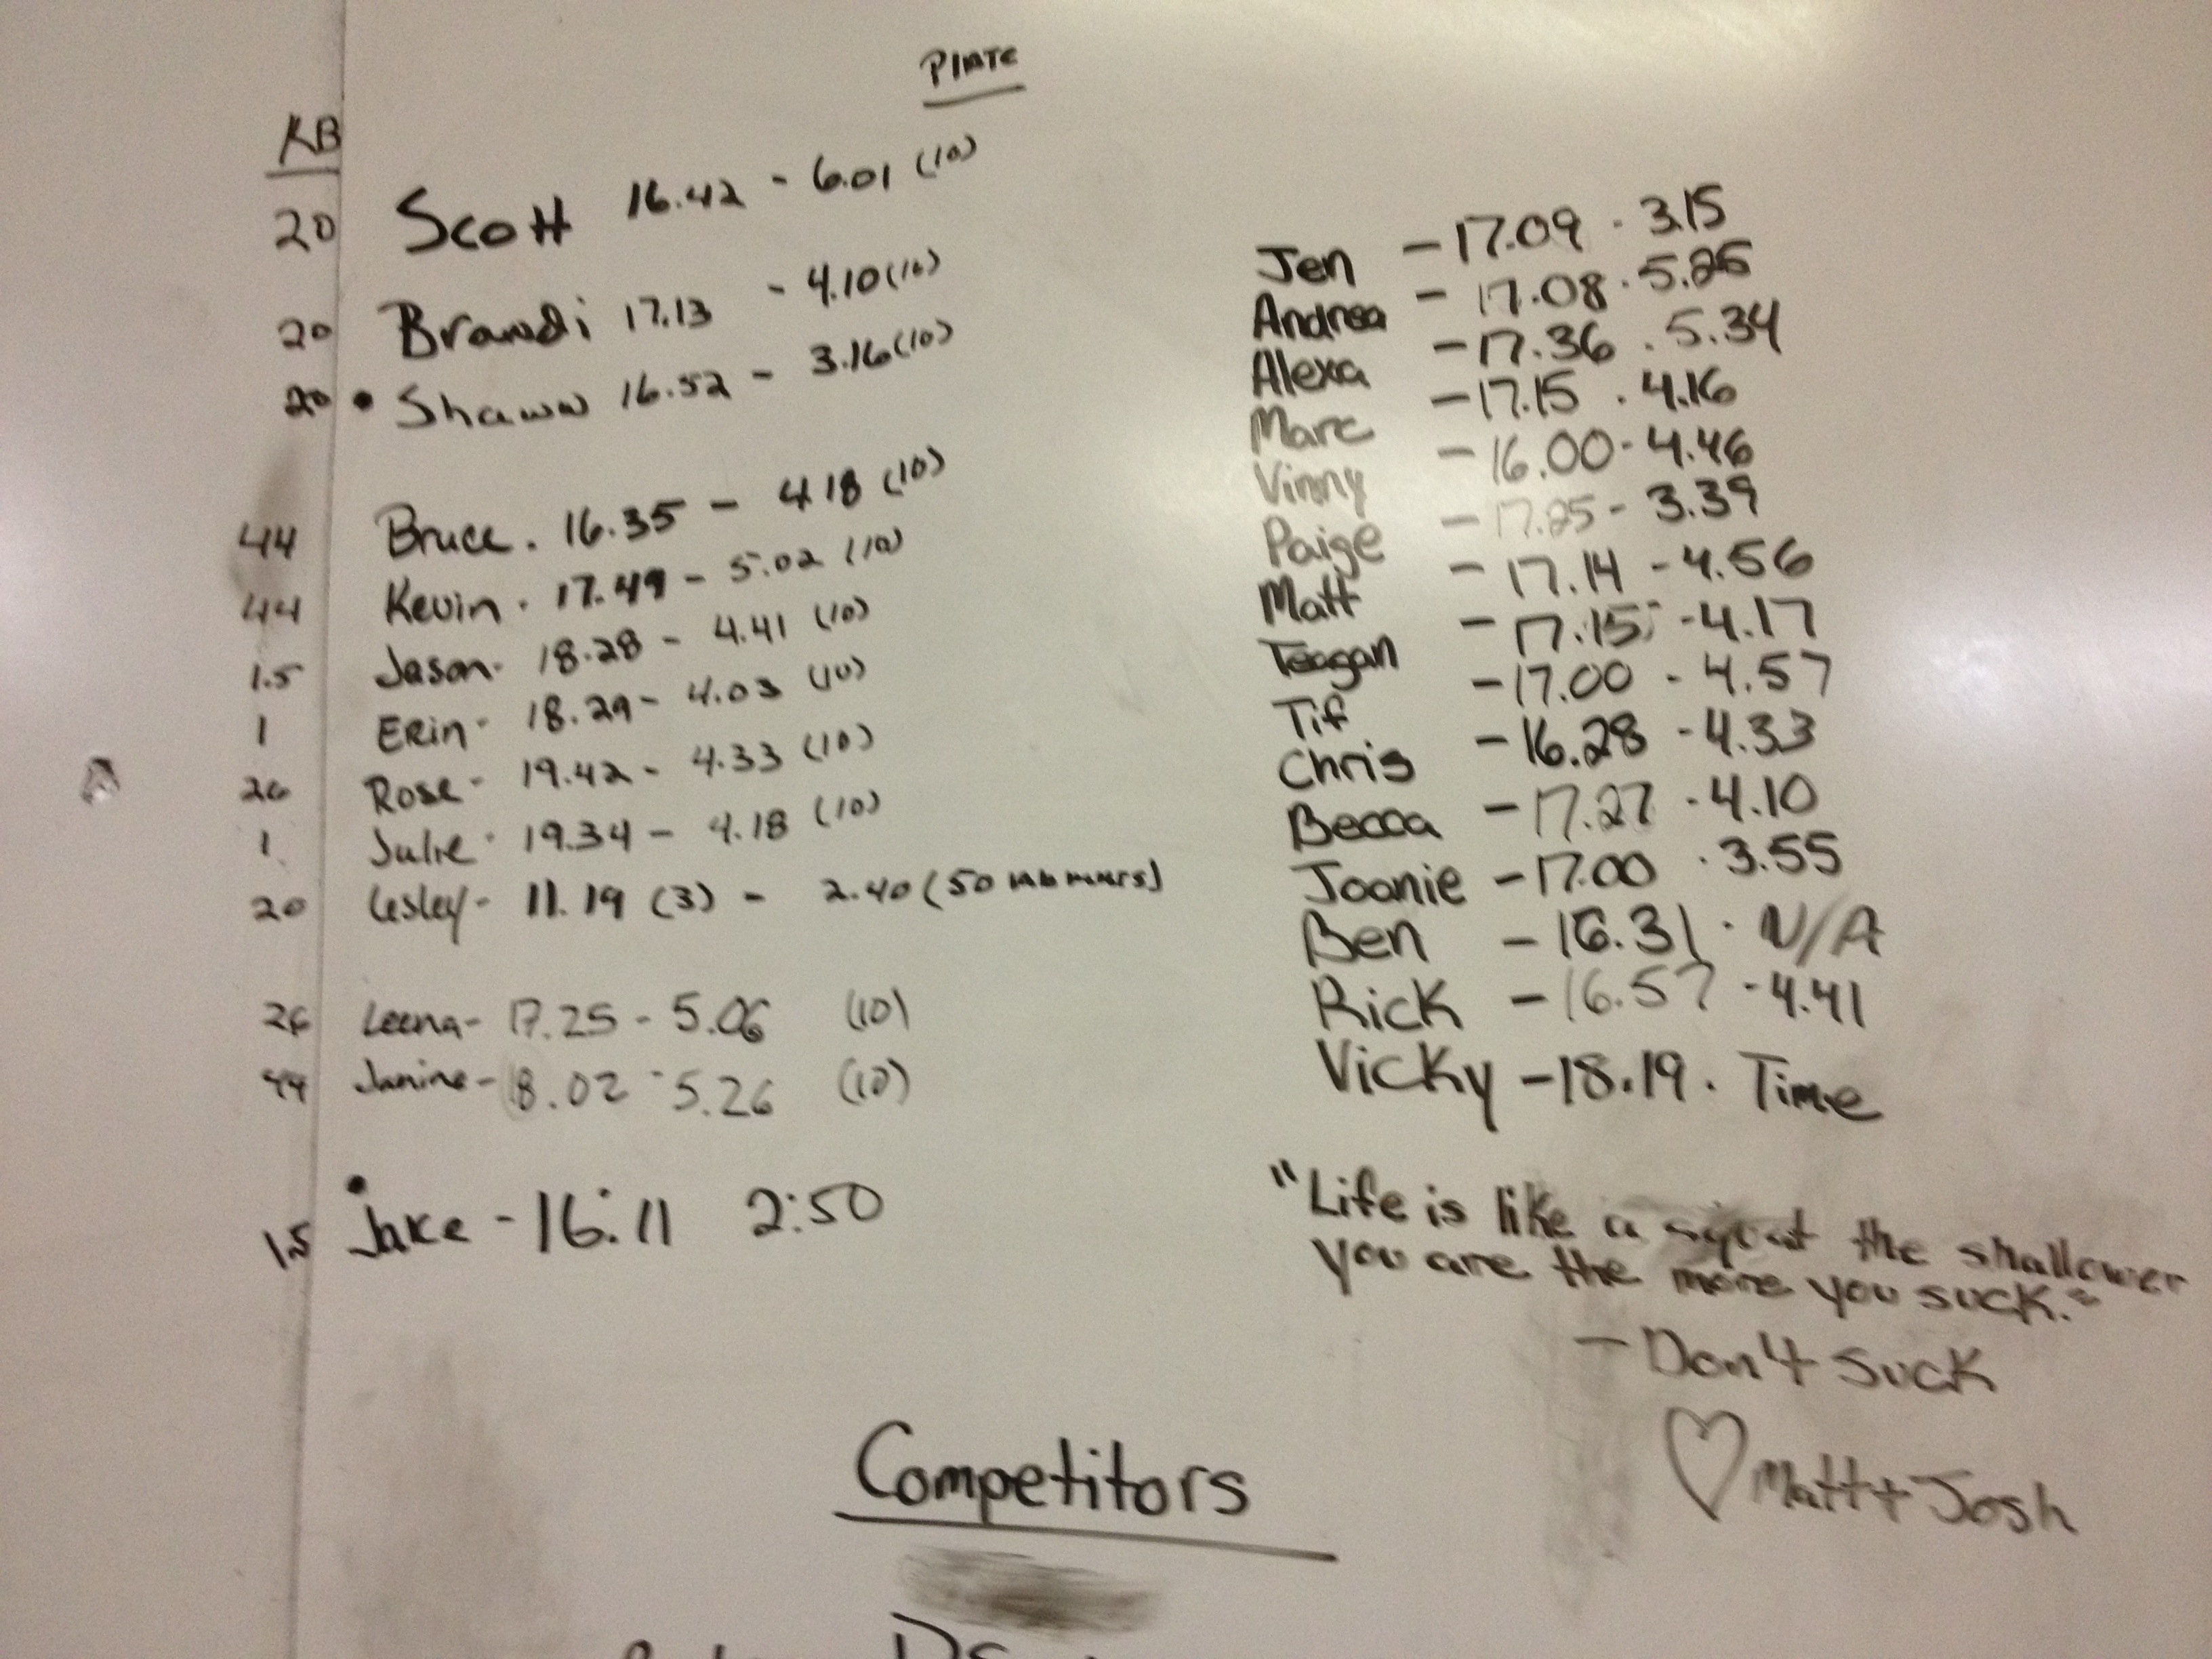 PLATE
KB
20 Scott 16.42 - 6.01 (10)
20 Brandi 17.13 - 4.10 (10)
20 • Shawn 16.52 - 3.16 (10)
44 Bruce. 16.35 - 4.18 (10)
44 Kevin. 17.49 - 5.02 (10)
1.5 Jason- 18.28 - 4.41 (10)
1 Erin- 18.29 - 4.03 (10)
26 Rose- 19.42 - 4.33 (10)
1 Julie- 19.34 - 4.18 (10)
20 Lesley- 11.19 (3) - 2.40 (50
26 Leena- 17.25 - 5.06 (10)
44 Janine- 18.02 - 5.26 (10)
1.5 • Jake - 16:11 2:50
Jen - 17.09 - 3.15
Andrea - 17.08 . 5.25
Alexa - 17.36 . 5.34
Marc - 17.15 . 4.16
Vinny - 16.00 - 4.46
Paige - 17.25 - 3.39
Matt - 17.14 - 4.56
Teagan - 17.15 - 4.17
Tif - 17.00 - 4.57
Chris - 16.28 - 4.33
Becca - 17.27 - 4.10
Joanie - 17.00 . 3.55
Ben - 16.31 . N/A
Rick - 16.57 - 4.41
Vicky - 18.19 . Time
"Life is like a squat the shallower
you are the more you suck."
- Don't Suck
♡ Matt + Josh
Competitors